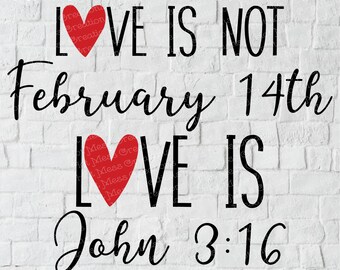 LOVE IS NOT
February 14th
LOVE IS
John 3:16